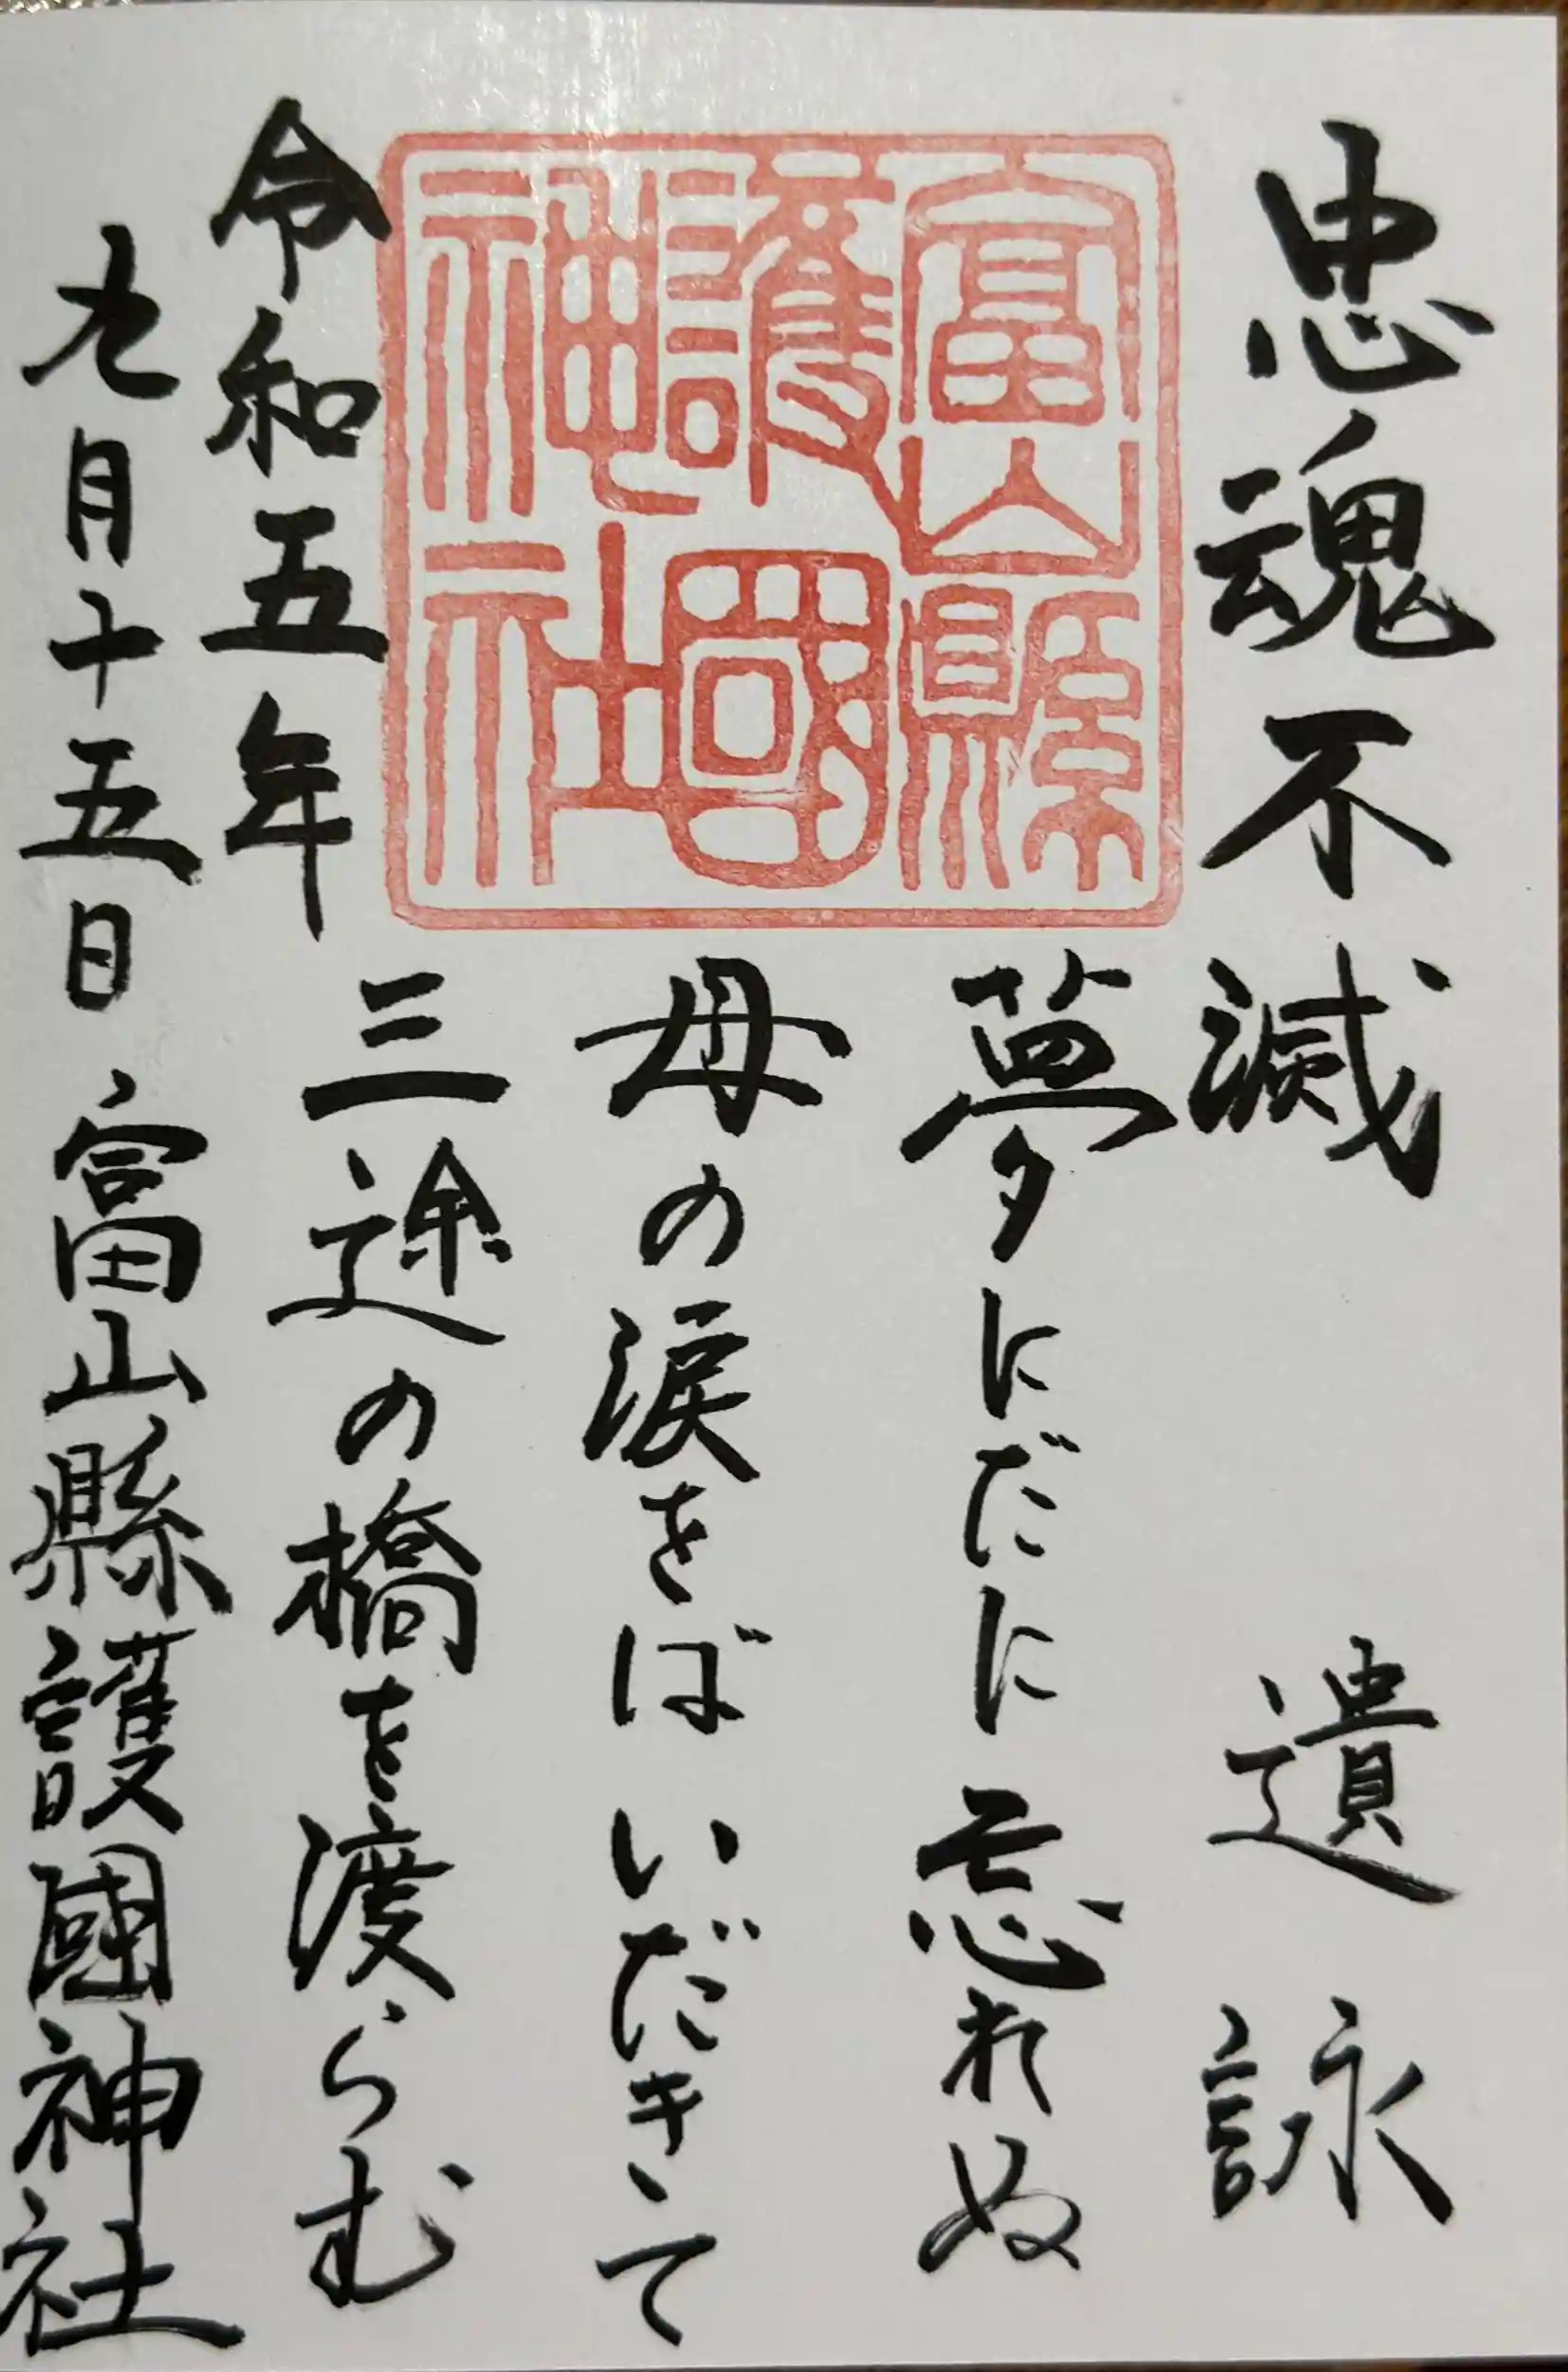 忠魂不滅 遺詠
富山縣
護國
神社
夢にだに忘れぬ
母の涙をばいだきて
三途の橋を渡らむ
令和五年
九月十五日 富山縣護國神社